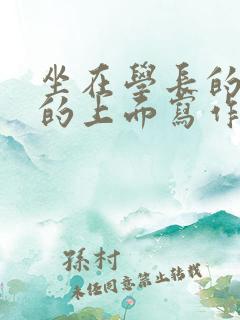 坐在學長的
的上面寫作
孫村
未經同意禁止轉載